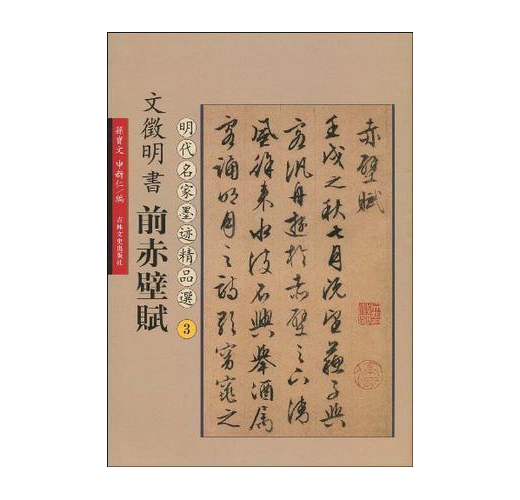 赤壁賦
壬戌之秋七月既望蘇子與
客汎舟遊於赤壁之下清
風徐來水波不興舉酒屬
客誦明月之詩歌窈窕之
明代名家墨迹精品選 3
文徵明書 前赤壁賦
孫寶文 申新仁/編
吉林文史出版社